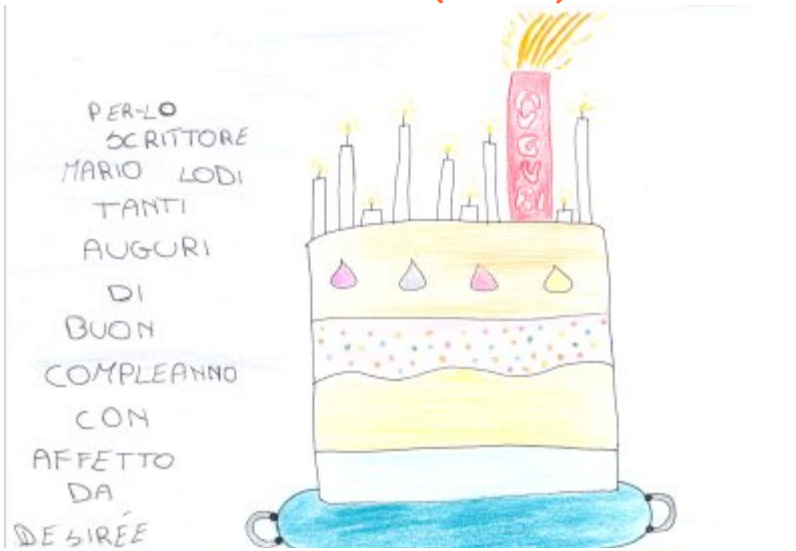 PER-LO
SCRITTORE
MARIO LODI
TANTI
AUGURI
DI
BUON
COMPLEANNO
CON
AFFETTO
DA
DESIRÉE